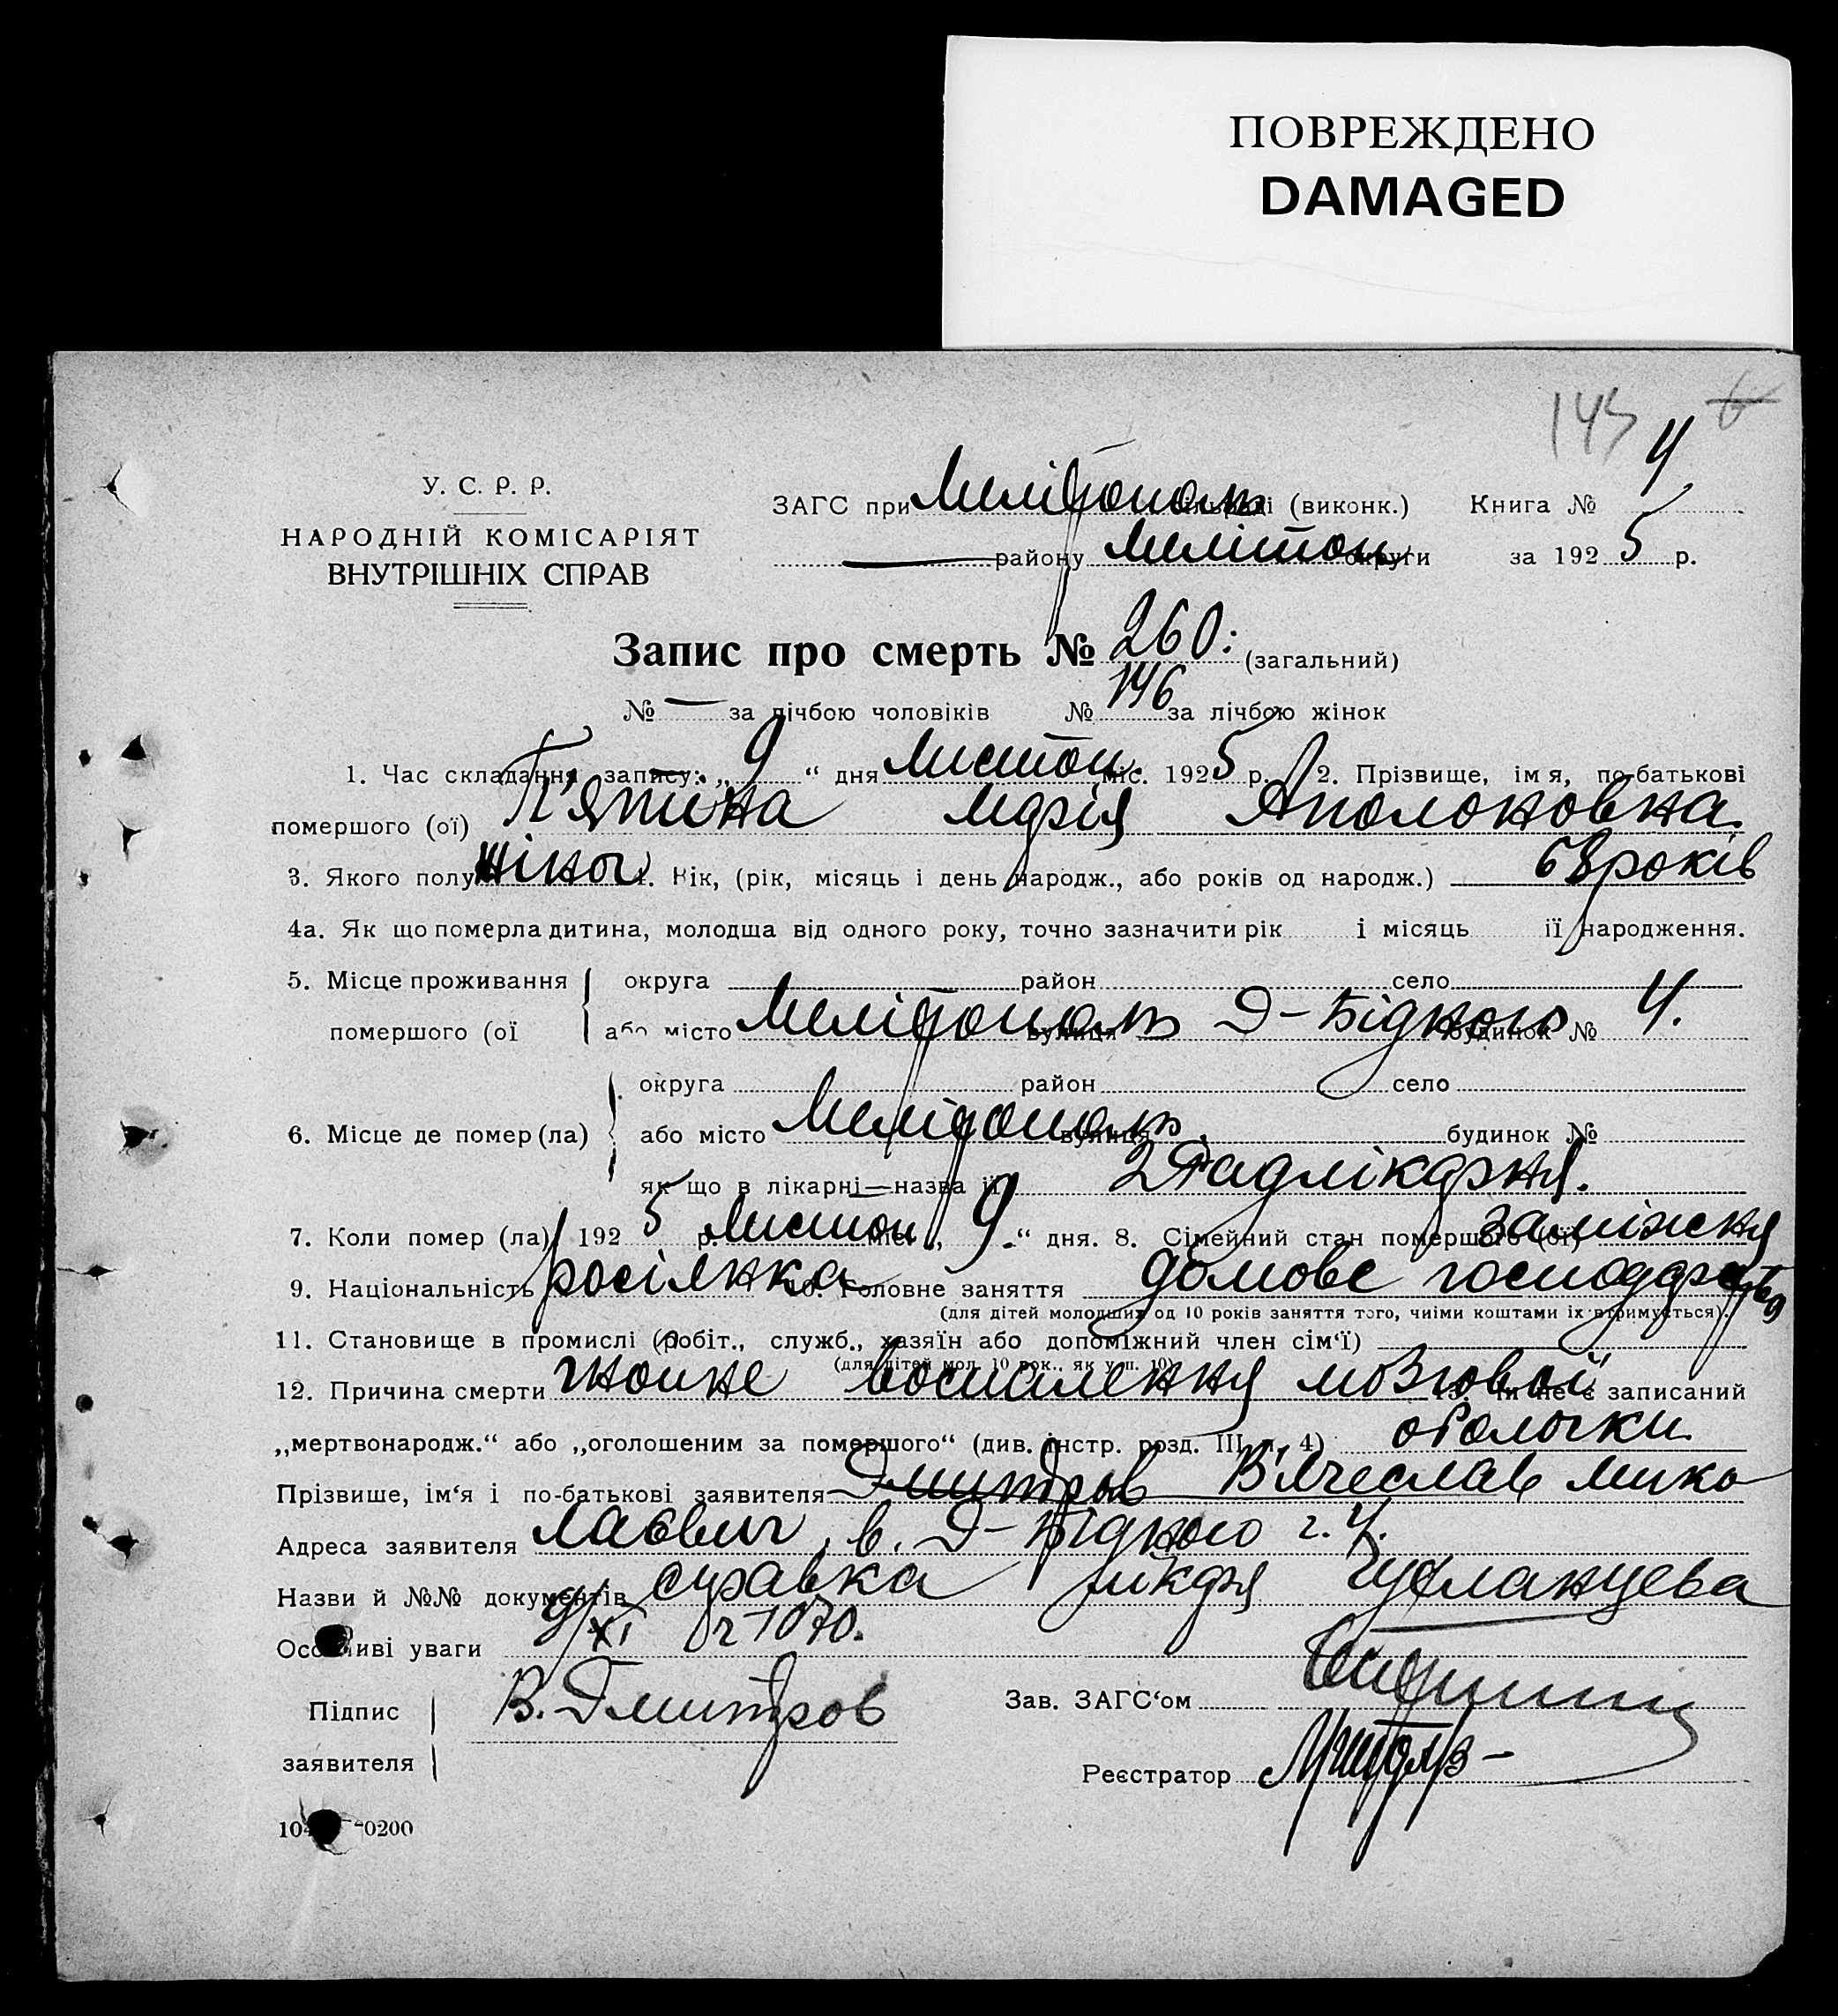 ПОВРЕЖДЕНО
DAMAGED
143 6
У. С. Р. Р.
НАРОДНІЙ КОМІСАРІЯТ
ВНУТРІШНІХ СПРАВ
ЗАГС при Мелітополь (виконк.) Книга № 4
— району Мелітоп округи за 1925 р.
Запис про смерть № 260: (загальний)
№ — за лічбою чоловіків № 146 за лічбою жінок
1. Час складання запису: „ 9 “ дня Листоп. міс. 1925 р. 2. Прізвище, імя, по-батькові
помершого (ої) П'ятина Марія Аполоновна
3. Якого полу жіноч. 4. Вік, (рік, місяць і день народж., або років од народж.) 68 років
4а. Як що померла дитина, молодша від одного року, точно зазначити рік і місяць її народження.
5. Місце проживання округа район село
помершого (ої або місто Мелітополь вулиця Д-Бідного будинок № 4.
округа район село
6. Місце де помер (ла) або місто Мелітополь вулиця будинок №
як що в лікарні—назва її 2 Радлікарня.
7. Коли помер (ла) 1925 р. Листоп міс. „ 9 “ дня. 8. Сімейний стан помершого (ої) заміжня
9. Національність росіянка 10. Головне заняття домове господарство
(для дітей молодших од 10 років заняття того, чиїми коштами їх втримується).
11. Становище в промислі (робіт., служб., хазяїн або допоміжний член сім‘ї)
(для дітей мол. 10 рок., як у п. 10)
12. Причина смерти гнойне воспалення мозгової 13. Чи не є записаний
„мертвонародж.“ або „оголошеним за помершого“ (див. інстр. розд. III п. 4) оболочки
Прізвише, ім‘я і по-батькові заявителя Дмитров В'ячеслав Мико
Адреса заявителя лаєвич, в. Д-Бідного ч. 4.
Назви й №№ документів справка лікаря
9/XI 1070.
Особливі уваги
Підпис В. Дмитров Зав. ЗАГС‘ом
заявителя
Реєстратор
0200